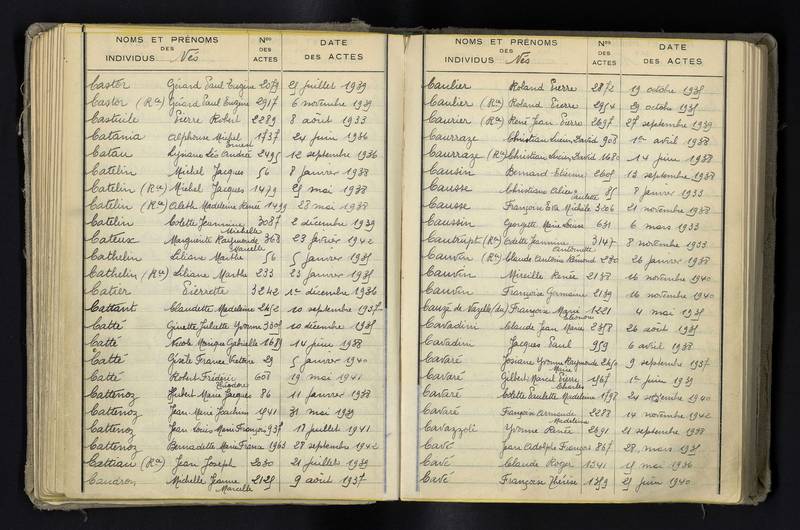 NOMS ET PRÉNOMS DES INDIVIDUS Nés Nos DES ACTES DATE DES ACTES
Castor Gérard Paul Eugène 2079 25 juillet 1939
Castor (Ra) Gérard Paul Eugène 2917 6 novembre 1939
Pierre Robert 2289 8 août 1933
Catania Alphonse Michel Ernest 1737 24 juin 1936
Catau Léo Andrée 2495 12 septembre 1936
Catelin Michel Jacques 56 8 janvier 1938
Catelin (Ra) Michel Jacques 1479 25 mai 1938
Catelin (Ra) Madeleine Renée 1499 28 mai 1938
Catelin Colette Jeannine Michelle 3087 2 décembre 1939
Cateux Marguerite Raymonde Marcelle 368 23 février 1942
Cathelin Liliane Marthe 56 5 janvier 1935
Cathelin (Ra) Liliane Marthe 233 23 janvier 1935
Catier Pierrette 3242 1er décembre 1936
Cattant Claudette Madeleine 2652 10 septembre 1937
Catté Ginette Juliette Yvonne 3305 10 décembre 1935
Catté Nicole Monique Gabrielle 1689 14 juin 1938
Catté Gisèle France 29 5 janvier 1940
Catté Robert Frédéric Théodore 608 19 mai 1941
Cattenoz Hubert Marie Jacques 86 11 janvier 1938
Cattenoz Jean Marie Joachim 1541 31 mai 1939
Cattenoz Jean Louis Marie François 1935 17 juillet 1941
Cattenoz Bernadette Marie France 1963 28 septembre 1942
Cattiau (Ra) Jean Joseph 2030 21 juillet 1939
Caudron Michelle Jeanne Marcelle 2125 9 août 1937
NOMS ET PRÉNOMS DES INDIVIDUS Nés Nos DES ACTES DATE DES ACTES
Caulier Roland Pierre 2872 19 octobre 1935
Caulier (Ra) Roland Pierre 2954 29 octobre 1935
Caurier (Ra) René Jean Pierre 2697 27 septembre 1939
Caurraze Christian Lucien David 908 1er avril 1938
Caurraze (Ra) Christian Lucien David 1680 14 juin 1938
Causin Bernard Etienne 2605 13 septembre 1938
Causse Christiane Alice Paulette 85 8 janvier 1933
Causse Françoise Eva Michèle 3206 21 novembre 1938
Caussin Georgette Marie Louise 631 6 mars 1933
(Ra) Odette Jeannine Antoinette 3147 8 novembre 1933
Cauvin (Ra) Claude Antoine Edmond 280 26 janvier 1938
Cauvin Mireille Renée 2138 16 novembre 1940
Cauvin Françoise Germaine 2139 16 novembre 1940
Cauzé de Nazelle (du) Françoise Marie Eléonore 1221 4 mai 1935
Cavadini Claude Jean Marie 2358 26 août 1935
Cavadini Jacques Paul 959 6 avril 1938
Cavaré Josiane Yvonne Raymonde Marie 2650 9 septembre 1937
Cavaré Gilbert Marcel Pierre Charles 1567 1er juin 1939
Cavaré Colette Paulette Madeleine 1798 24 septembre 1940
Cavaré Françoise Armande Madeleine 2288 14 novembre 1942
Cavazzoli Yvonne Renée 2691 21 septembre 1938
Cavé Jean Adolphe François 867 28 mars 1935
Cavé Claude Roger 1341 15 mai 1936
Cavé Françoise Thérèse 1359 25 juin 1940